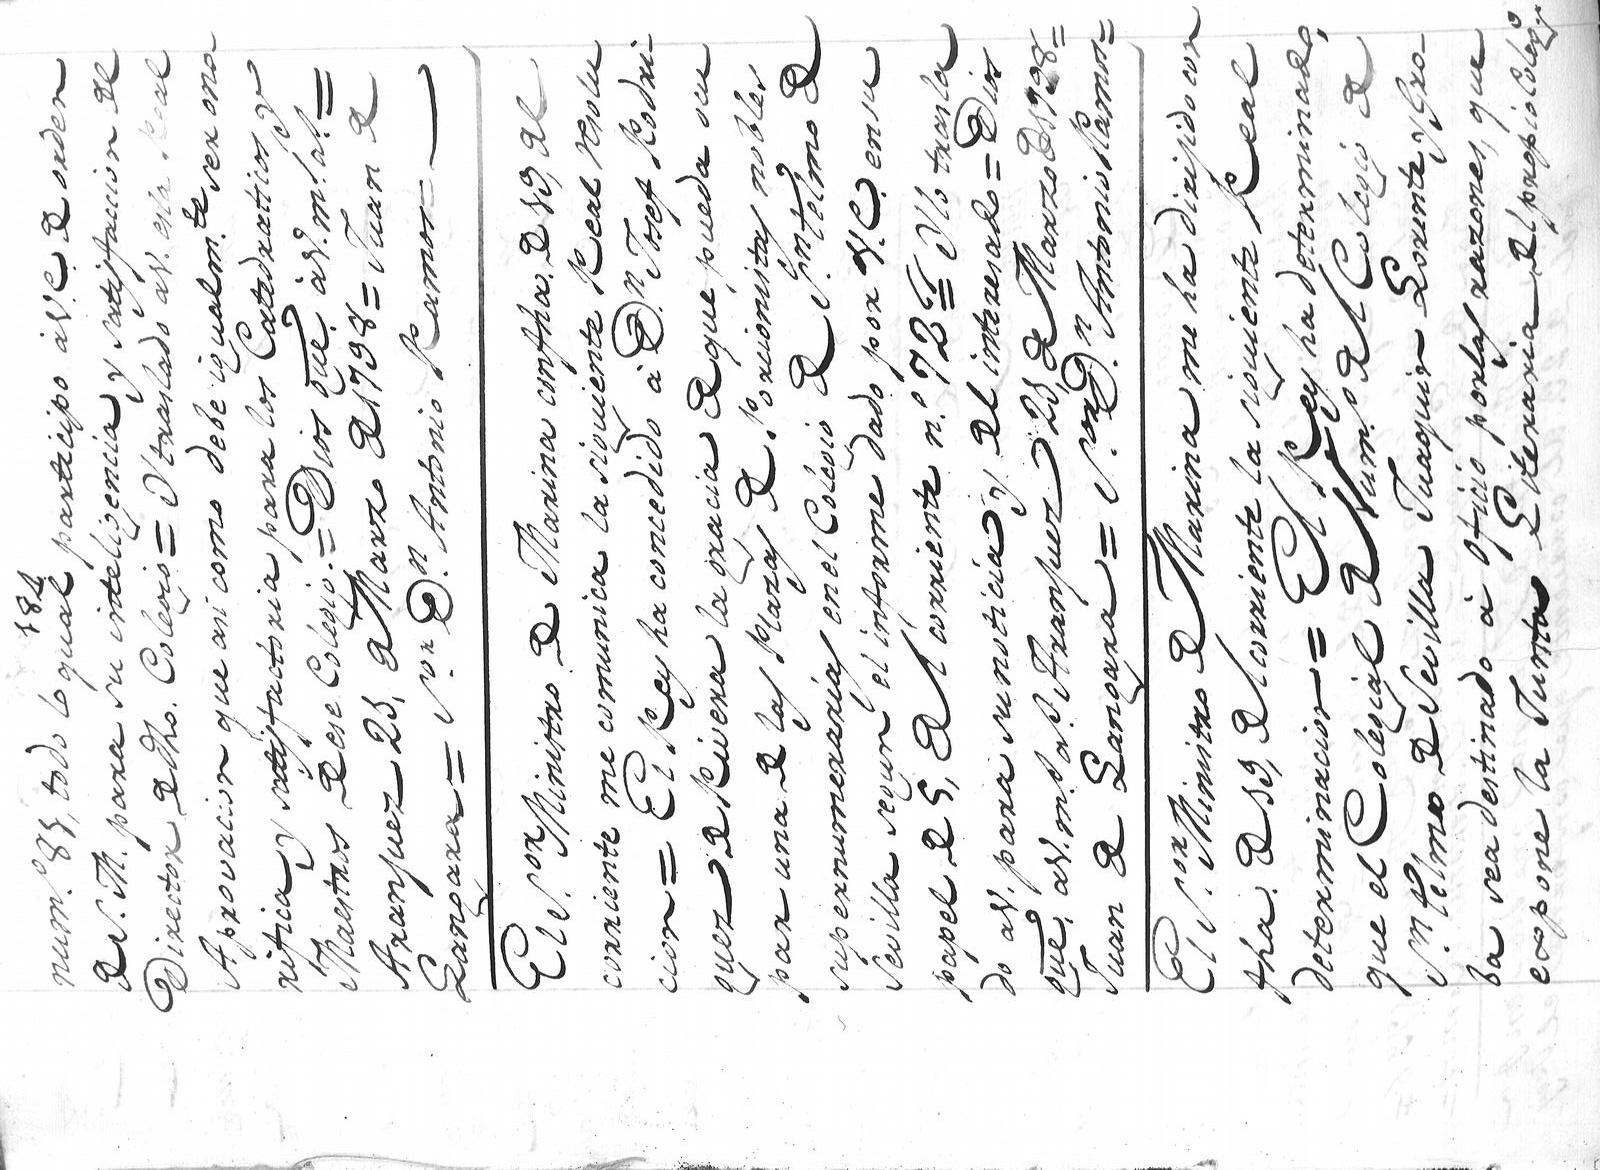 184
num.º 83, todo lo qual participo à V.E. de orden
de S.M. para su inteligencia y satisfaccion del
Director de dho. Colegio = Y traslado à V. esta Real
Aprovacion que asi como debe igualm.te ser ono
rifica y satisfactoria para los Catedraticos y
Maestros de ese Colegio. = Dios gue. à V. m.s a.s =
Aranjuez 25, de Marzo de 1798 = Juan de
Langara = S.or D.n Antonio Ramos =
El S.or Ministro de Marina con fha. de 19, del
corriente me comunica la siguiente Real resolu
cion = El Rey ha concedido à D.n Josef Rodri-
guez de Rivera la gracia de que pueda ocu
par una de las Plazas de Porcionistas nobles
supernumerarias en el Colegio de S.n Telmo de
Sevilla segun el informe dado por V.E. en su
papel de 5, del corriente n.º 72 = Y lo trasla
do à V. para su noticia y del interesado = Dios
gue. à V. m.s a.s Aranjuez 25, de Marzo de 1798 =
Juan de Langara = S.or D.n Antonio Ramos =
El S.or Ministro de Marina me ha dirijido con
fha. de 19, del corriente la siguiente Real
determinacion = El Rey ha determinado,
que el Colegial de Num.º del Colegio de
S.n Telmo de Sevilla Juaquin Lorente y Gro-
ba sea destinado à oficio por las razones, que
expone la Junta Literaria del propio Colegº y